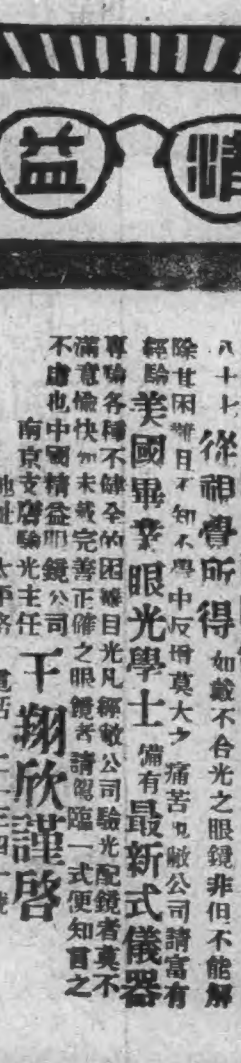 精益
八十七 從視覺所得 如戴不合光之眼鏡非但不能解
除其困難且不知不覺中反增莫大之痛苦 敝公司請富有
經驗美國畢業眼光學士 備有最新式儀器
專驗各種不健全的困難目光凡經敝公司驗光配鏡者莫不
滿意愉快如未戴完善正確之眼鏡者請駕臨一式便知言之
不虛也中國精益眼鏡公司
南京支店驗光主任 干翔欣謹啓
地址 太平路 電話 二一三四一號